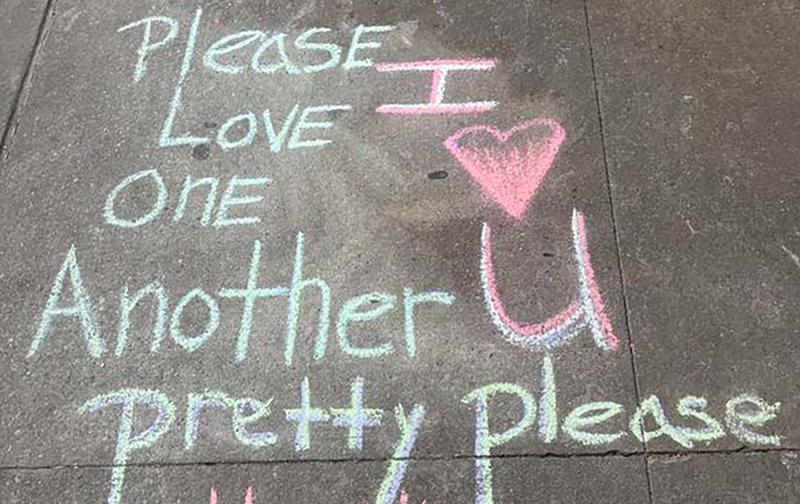 PleasE
LovE
onE
Another
I
♥
U
pretty please